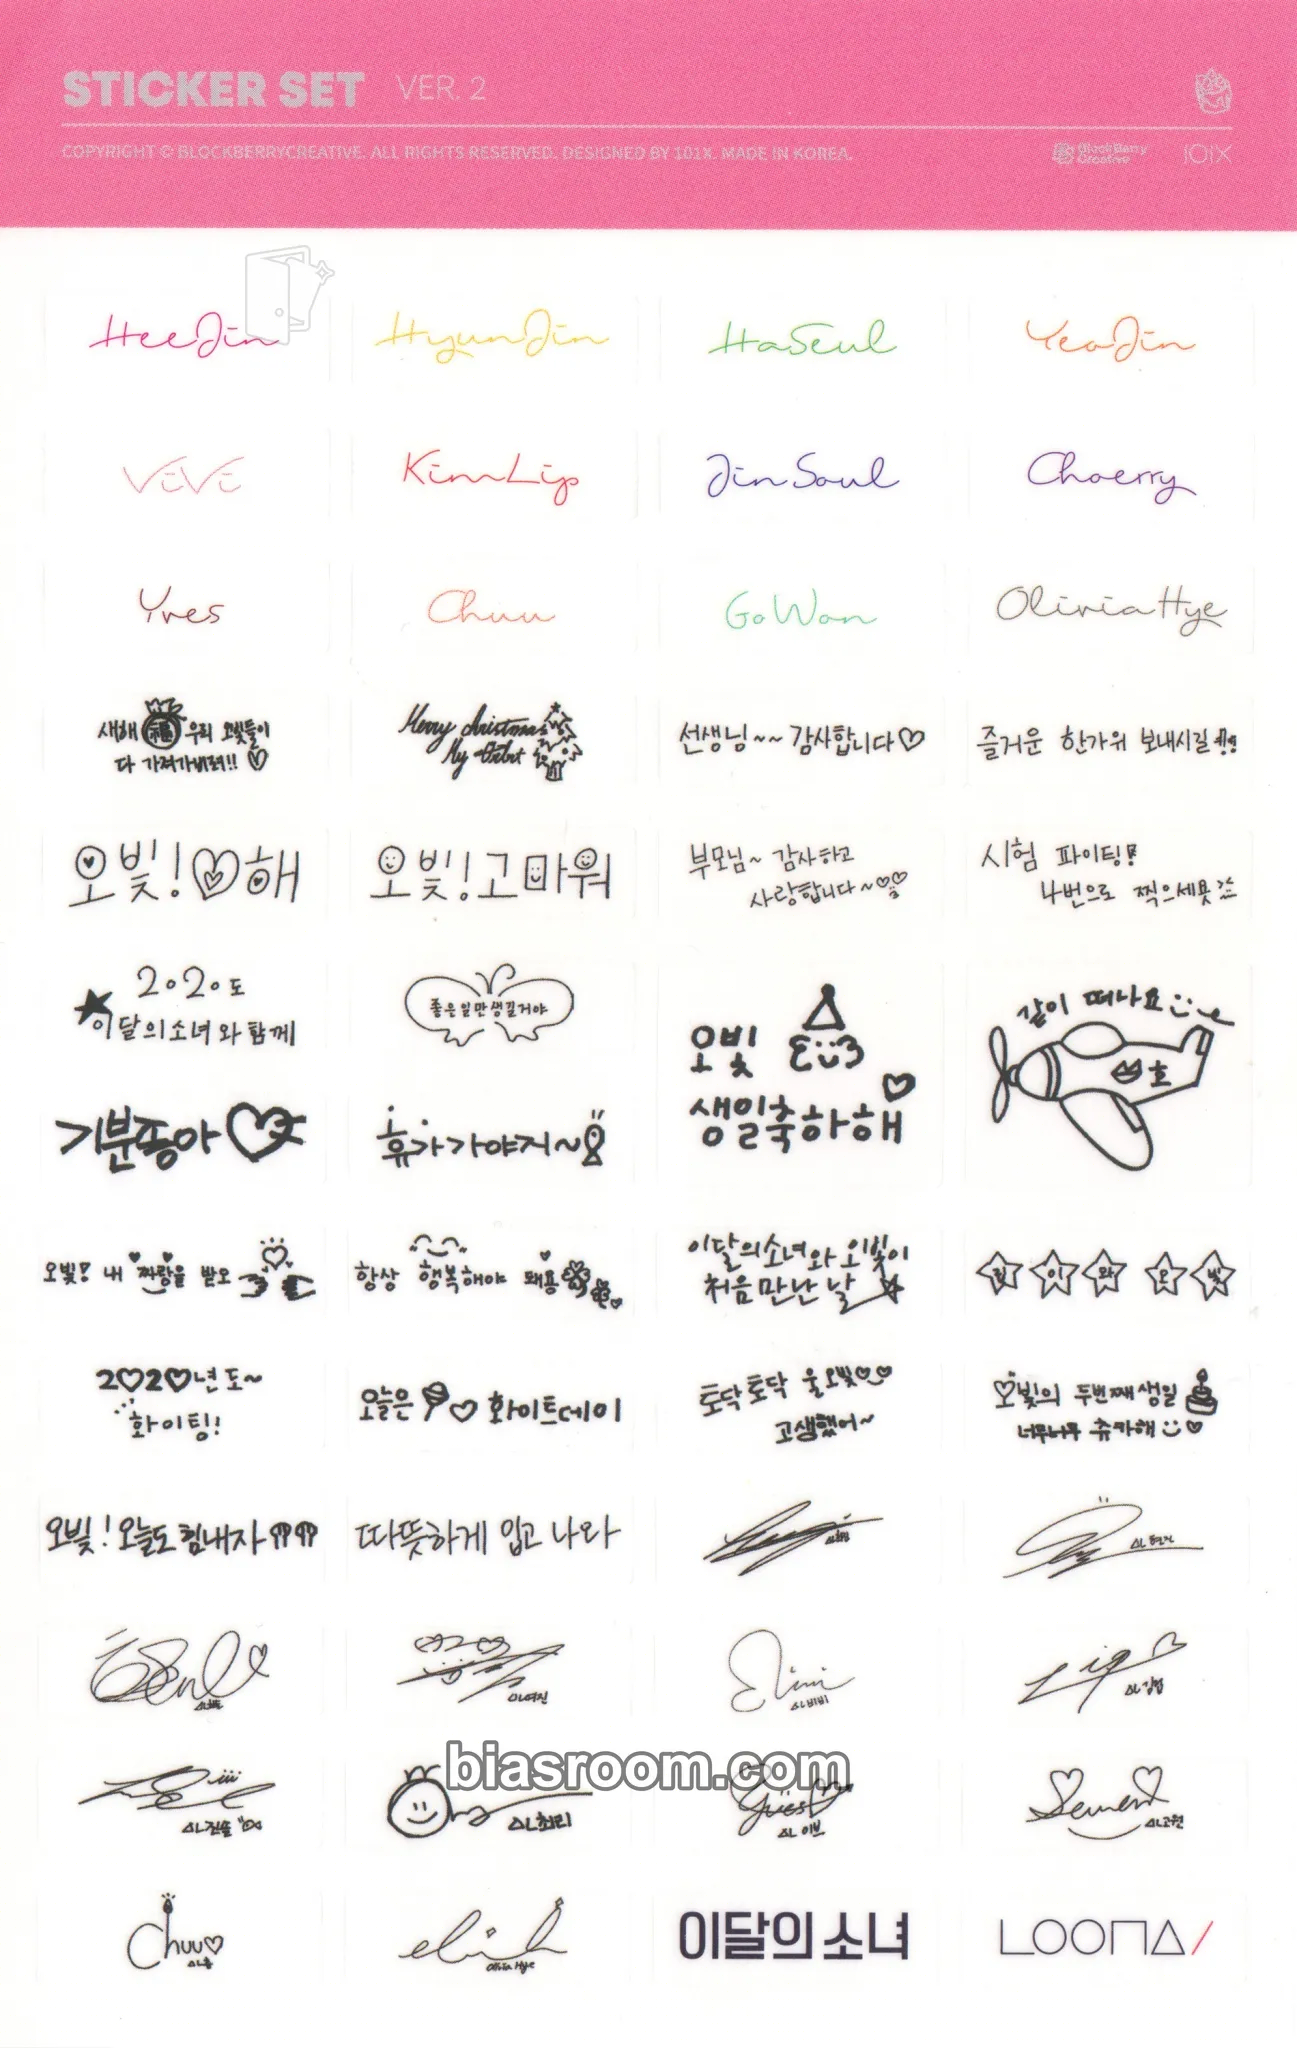 STICKER SET VER. 2
COPYRIGHT © BLOCKBERRYCREATIVE. ALL RIGHTS RESERVED. DESIGNED BY 101X. MADE IN KOREA.
BlockBerry Creative
101X
HeeJin
HyunJin
HaSeul
YeoJin
ViVi
KimLip
JinSoul
Choerry
Yves
Chuu
GoWon
OliviaHye
새해 福 우리 오빛들이
다 가져가버려!! ♡
Merry christmas
My Orbit
선생님~~ 감사합니다♡
즐거운 한가위 보내시길
오빛!♡해
오빛!고마워
부모님~ 감사하고
사랑합니다~♡♡
시험 파이팅!
4번으로 찍으세욧
2020도
이달의소녀와함께
좋은일만생길거야
오빛
생일축하해♡
같이 떠나요
호
기분좋아♡
휴가가야지~
오빛! 내 짜랑을 받오
항상 행복해야 돼용
이달의소녀와 오빛이
처음만난날
이 와 오 빛
2♡2♡년도~
화이팅!
오늘은 ♡ 화이트데이
토닥토닥 울오빛
고생했어~
오빛의 두번째생일
너무너무 츄카해 ♡
오빛!오늘도힘내자
따뜻하게 입고 나와
이여진
이비비
이김립
이진솔
이최리
이이브
이고원
Chuu♡
Olivia Hye
이달의 소녀
LOOΠΔ/
biasroom.com